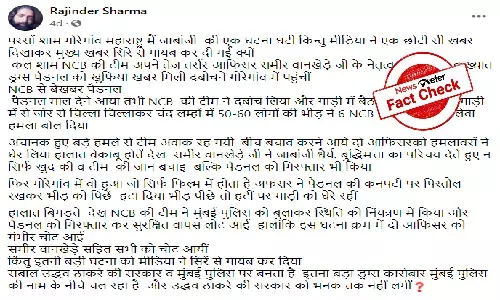 Rajinder Sharma
4d
परसों शाम गोरेगांव महाराष्ट्र में जाबांजी की एक घटना घटी किन्तु मीडिया ने एक छोटी सी खबर
दिखाकर मुख्य खबर सिरे से गायब कर दी गई क्यों
कल शाम NCB की टीम अपने तेज तर्रार आफिसर समीर वानखेड़े जी के नेतृत्व
ड्रग्स पैडलर की खुफिया खबर मिली दबोचने गोरेगांव में पहुंचीं
NCB से बेखबर पैडलर
पैडलर माल देने आया तभी NCB की टीम ने दबोच लिया और गाड़ी में
में से जोर से चिल्ला चिल्लाकर चंद लम्हों में 50-60 लोगों की भीड़ ने 6 NCB
हमला बोल दिया
अचानक हुए बड़े हमले से टीम अवाक रह गयी बीच बचाव करने आये दो आफिसरको हमलावरों ने
घेर लिया हालात बेकाबू होते देख समीर वानखेड़े जी ने जाबांजी धैर्य बुद्धिमता का परिचय देते हुए न
सिर्फ खुद की व टीम की जान बचाई बल्कि पैडलर को गिरफ्तार भी किया
फिर गोरेगांव में वो हुआ जो सिर्फ फिल्म में होता है अफसर ने पैडलर की कनपटी पर पिस्तौल
रखकर भीड़ को पिछे हटा दिया भीड़ पीछे तो हटी पर गाड़ी को घेरे रहीं
हालात बिगड़ते देख NCB की टीम ने मुंबई पुलिस को बुलाकर स्थिति को नियंत्रण में किया और
पैडलर को गिरफ्तार कर सुरक्षित वापस लौट आई हालांकि इस घटना क्रम में दो आफिसर को
गंभीर चोट आई
समीर वानखेड़े सहित सभी को चोट आयीं
किंतु इतनी बड़ी घटना को मीडिया ने सिरे से गायब कर दिया
सवाल उद्धव ठाकरे की सरकार व मुंबई पुलिस पर बनता है इतना बड़ा ड्रग्स कारोबार मुंबई पुलिस
की नाम के नीचे चल रहा है और उद्धव ठाकरे की सरकार को भनक तक नहीं लगी?
Fact Check